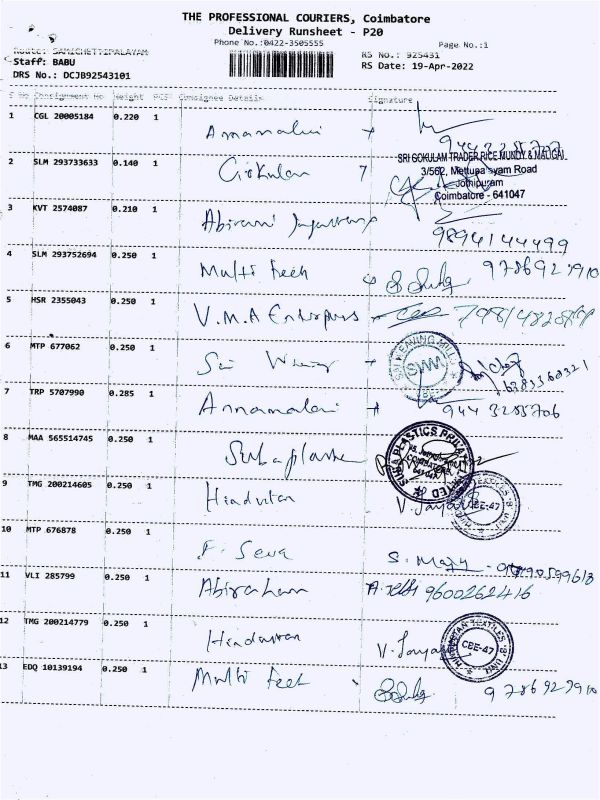 THE PROFESSIONAL COURIERS, Coimbatore
Delivery Runsheet - P20
Phone No.:0422-3505555
Page No.:1
Route: SAMICHETTIPALAYAM
RS No.: 925431
Staff: BABU
RS Date: 19-Apr-2022
DRS No.: DCJB92543101
S No Consignment No Weight PCS Consignee Details Signature
1 CGL 20005184 0.220 1
Annamalai
2 SLM 293733633 0.140 1
Gokulam
SRI GOKULAM TRADER,RICE MUNDY & MALIGAI
3/562, Mettupalayam Road
Jothipuram
Coimbatore - 641047
3 KVT 2574087 0.210 1
Abirami
9894144499
4 SLM 293752694 0.250 1
Multi Teck
9786929910
5 HSR 2355043 0.250 1
V.M.A Enterprises
6 MTP 677062 0.250 1
Sri
SWM
7 TRP 5707990 0.285 1
Annamalai
944 3285706
8 MAA 565514745 0.250 1
Suba plastic
9 TMG 200214605 0.250 1
Hindustan
V. Jaya
CBE-47
10 MTP 676878 0.250 1
F. Seva
S. Mary
11 VLI 285799 0.250 1
Abiraham
9600262416
12 TMG 200214779 0.250 1
Hindustan
V. Jaya
HINDUSTAN TEXTILES 'B' UNIT
CBE-47
13 EDQ 10139194 0.250 1
Multi Teck
9786929910